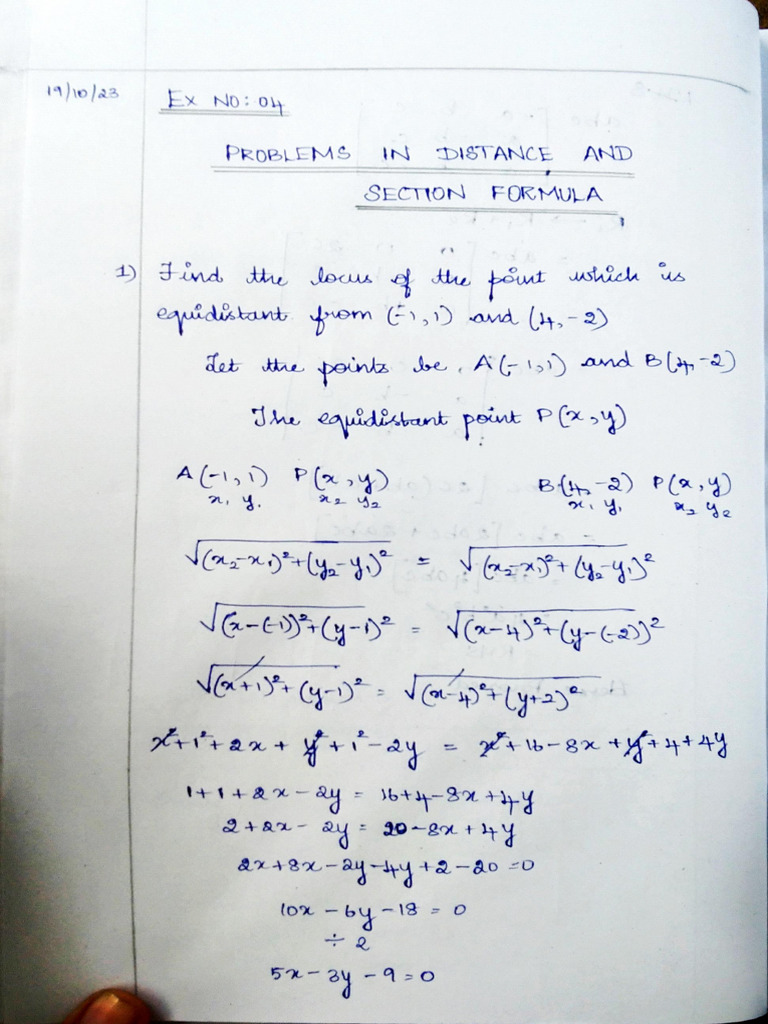 19/10/23
EX NO: 04
PROBLEMS IN DISTANCE AND
SECTION FORMULA
1) Find the locus of the point which is
equidistant from (-1,1) and (4,-2)
Let the points be A(-1,1) and B(4,-2)
The equidistant point P(x,y)
A(-1,1) P(x,y) B(4,-2) P(x,y)
x₁ y₁ x₂ y₂ x₁ y₁ x₂ y₂
√(x₂-x₁)²+(y₂-y₁)² = √(x₂-x₁)²+(y₂-y₁)²
√(x-(-1))²+(y-1)² = √(x-4)²+(y-(-2))²
√(x+1)²+(y-1)² = √(x-4)²+(y+2)²
x²+1²+2x+y²+1²-2y = x²+16-8x+y²+4+4y
1+1+2x-2y = 16+4-8x+4y
2+2x-2y = 20-8x+4y
2x+8x-2y-4y+2-20=0
10x-6y-18=0
÷2
5x-3y-9=0